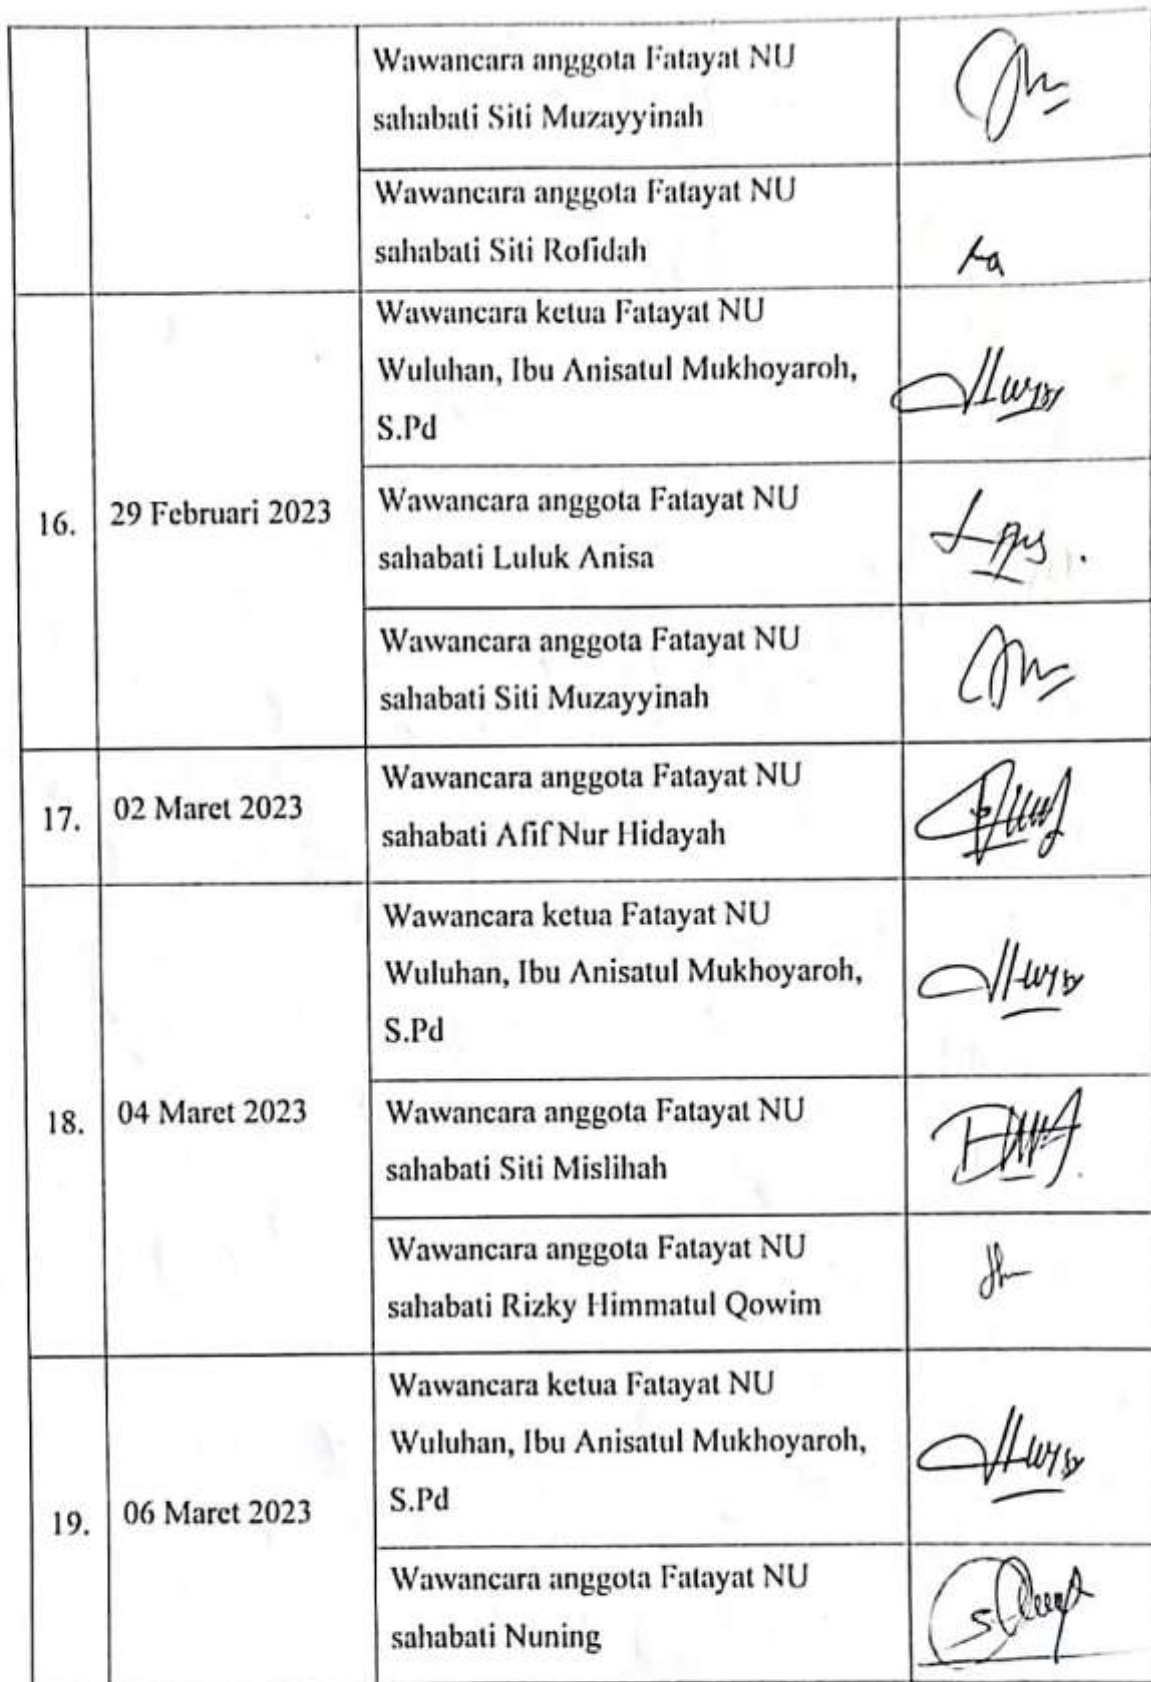 Wawancara anggota Fatayat NU
sahabati Siti Muzayyinah
Wawancara anggota Fatayat NU
sahabati Siti Rofidah
16.
29 Februari 2023
Wawancara ketua Fatayat NU
Wuluhan, Ibu Anisatul Mukhoyaroh,
S.Pd
Wawancara anggota Fatayat NU
sahabati Luluk Anisa
Wawancara anggota Fatayat NU
sahabati Siti Muzayyinah
17.
02 Maret 2023
Wawancara anggota Fatayat NU
sahabati Afif Nur Hidayah
18.
04 Maret 2023
Wawancara ketua Fatayat NU
Wuluhan, Ibu Anisatul Mukhoyaroh,
S.Pd
Wawancara anggota Fatayat NU
sahabati Siti Mislihah
Wawancara anggota Fatayat NU
sahabati Rizky Himmatul Qowim
19.
06 Maret 2023
Wawancara ketua Fatayat NU
Wuluhan, Ibu Anisatul Mukhoyaroh,
S.Pd
Wawancara anggota Fatayat NU
sahabati Nuning